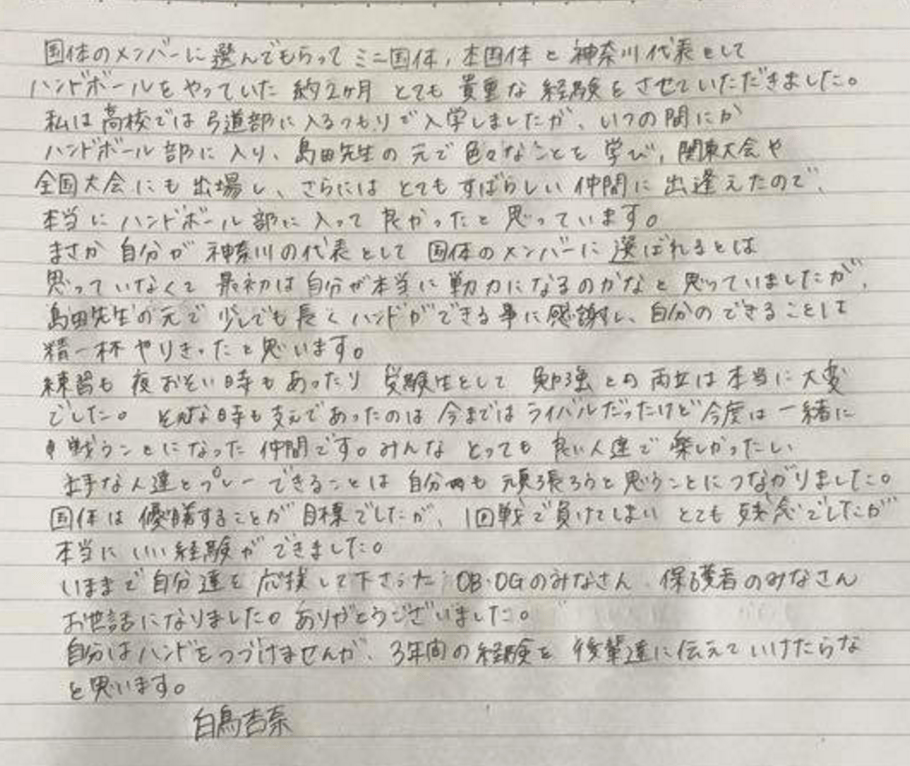 国体のメンバーに選んでもらって ミニ国体, 本国体 と 神奈川代表として
ハンドボールをやっていた 約2ヶ月 とても 貴重な 経験を させていただきました。
私は 高校では 弓道部に入るつもりで入学しましたが、いつの間にか
ハンドボール部に入り、島田先生の 元で色々なことを 学び, 関東大会や
全国大会にも 出場し、さらには とても すばらしい 仲間に 出逢えたので、
本当に ハンドボール部に 入って 良かったと 思っています。
まさか 自分が 神奈川の代表として 国体のメンバーに 選ばれるとは
思っていなくて 最初は自分が本当に 戦力になるのかなと 思っていましたが,
島田先生の元で 少しでも長く ハンドができる事に感謝し、自分のできることは
精一杯 やりきったと思います。
練習も 夜おそい時も あったり 受験生として 勉強との両立は 本当に 大変
でした。 そんな時も支えであったのは 今まではライバルだったけど今度は 一緒に
戦うことになった 仲間です。みんな とっても 良い人達で 楽しかったし
上手な人達とプレーできることは 自分も 頑張ろうと思うことにつながりました。
国体は 優勝することが目標でしたが、1回戦で負けてしまい とても 残念でしたが
本当に いい経験ができました。
いままで 自分達を 応援して下さった OB・OGのみなさん 保護者のみなさん
お世話になりました。ありがとうございました。
自分はハンドをつづけませんが、3年間の経験を 後輩達に伝えて いけたらな
と思います。
白鳥杏奈